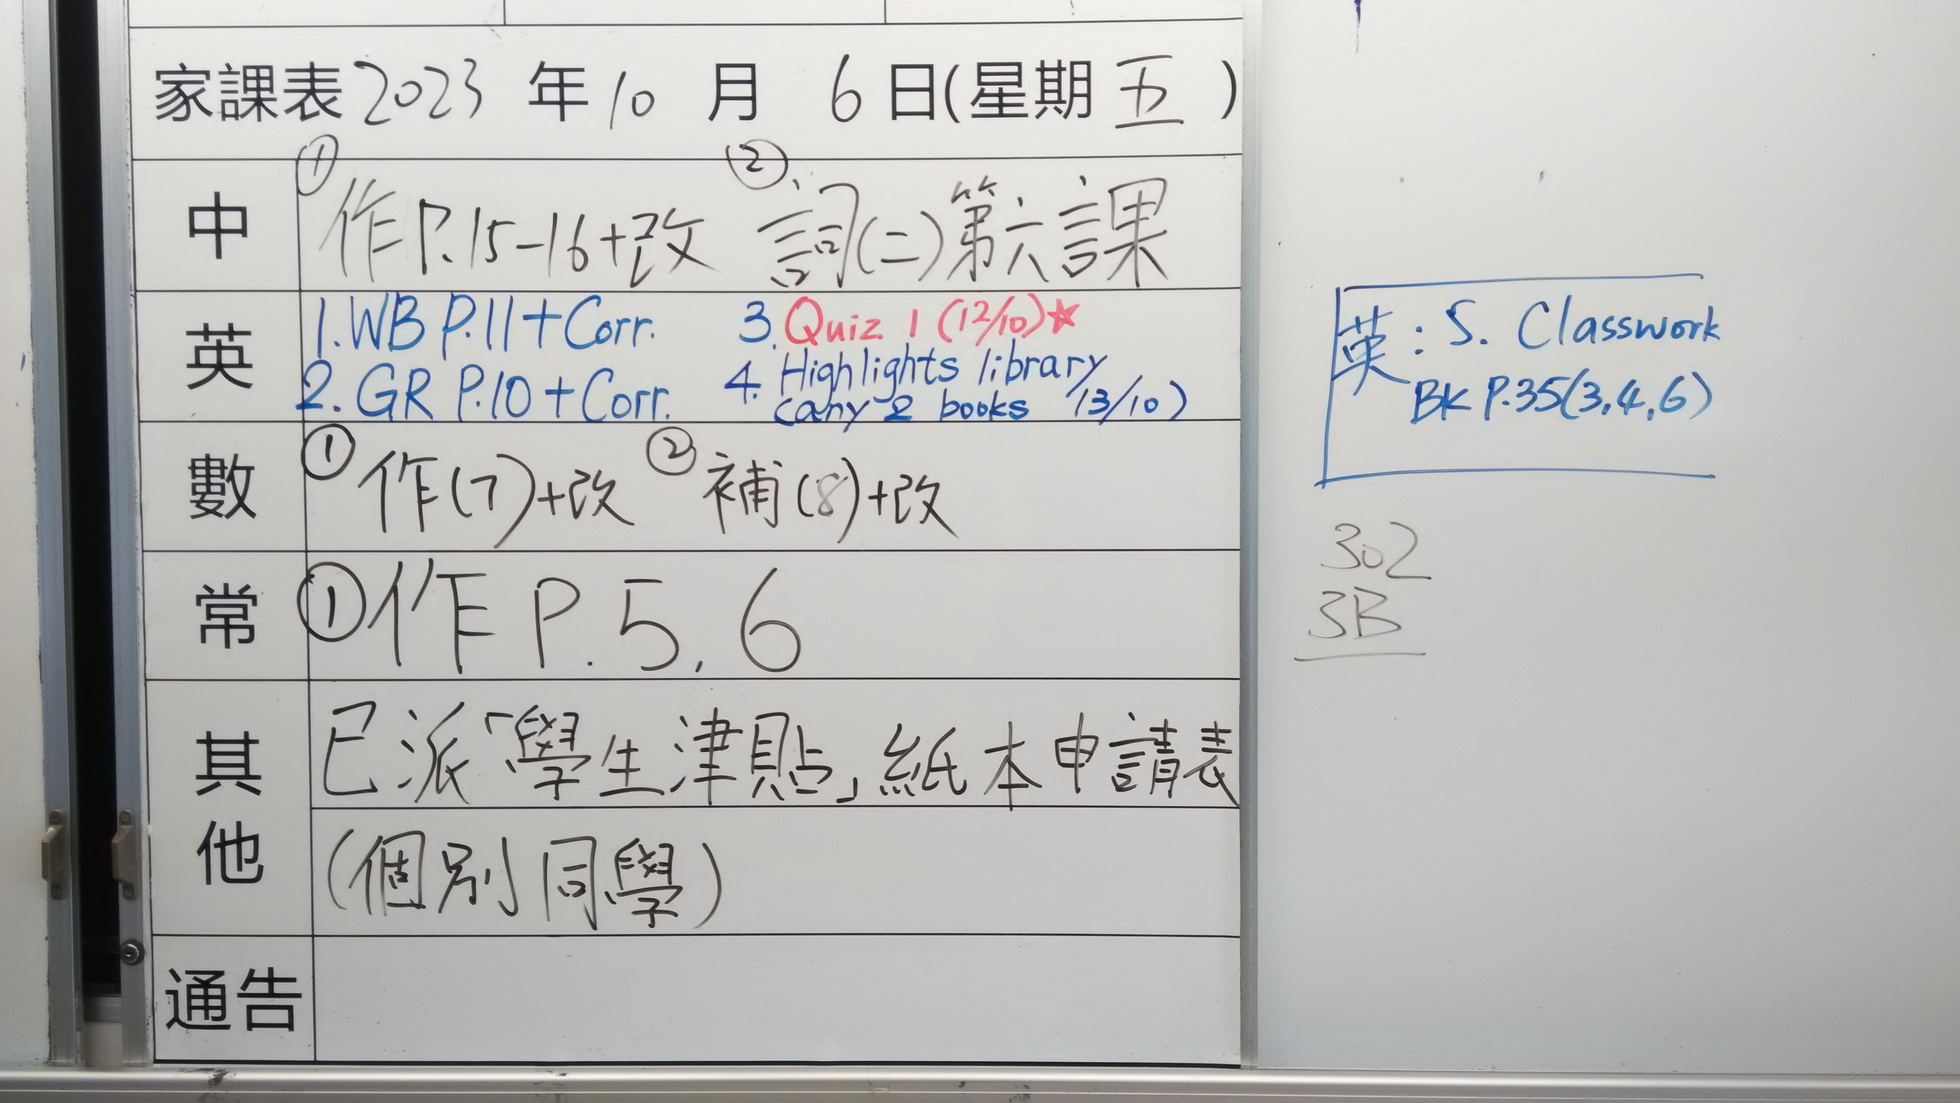 家課表 2023 年 10 月 6 日(星期 五 )
中 ① 作P.15-16+改 ② 詞(二)第六課
英 1. WB P.11 + Corr. 3. Quiz 1 (12/10)★
2. GR P.10 + Corr. 4. Highlights library
(any 2 books 13/10)
數 ① 作(7)+改 ② 補(8)+改
常 ① 作 P.5,6
其他 已派「學生津貼」紙本申請表
(個別同學)
通告
英: 5. Classwork
BK P.35(3,4,6)
302
3B